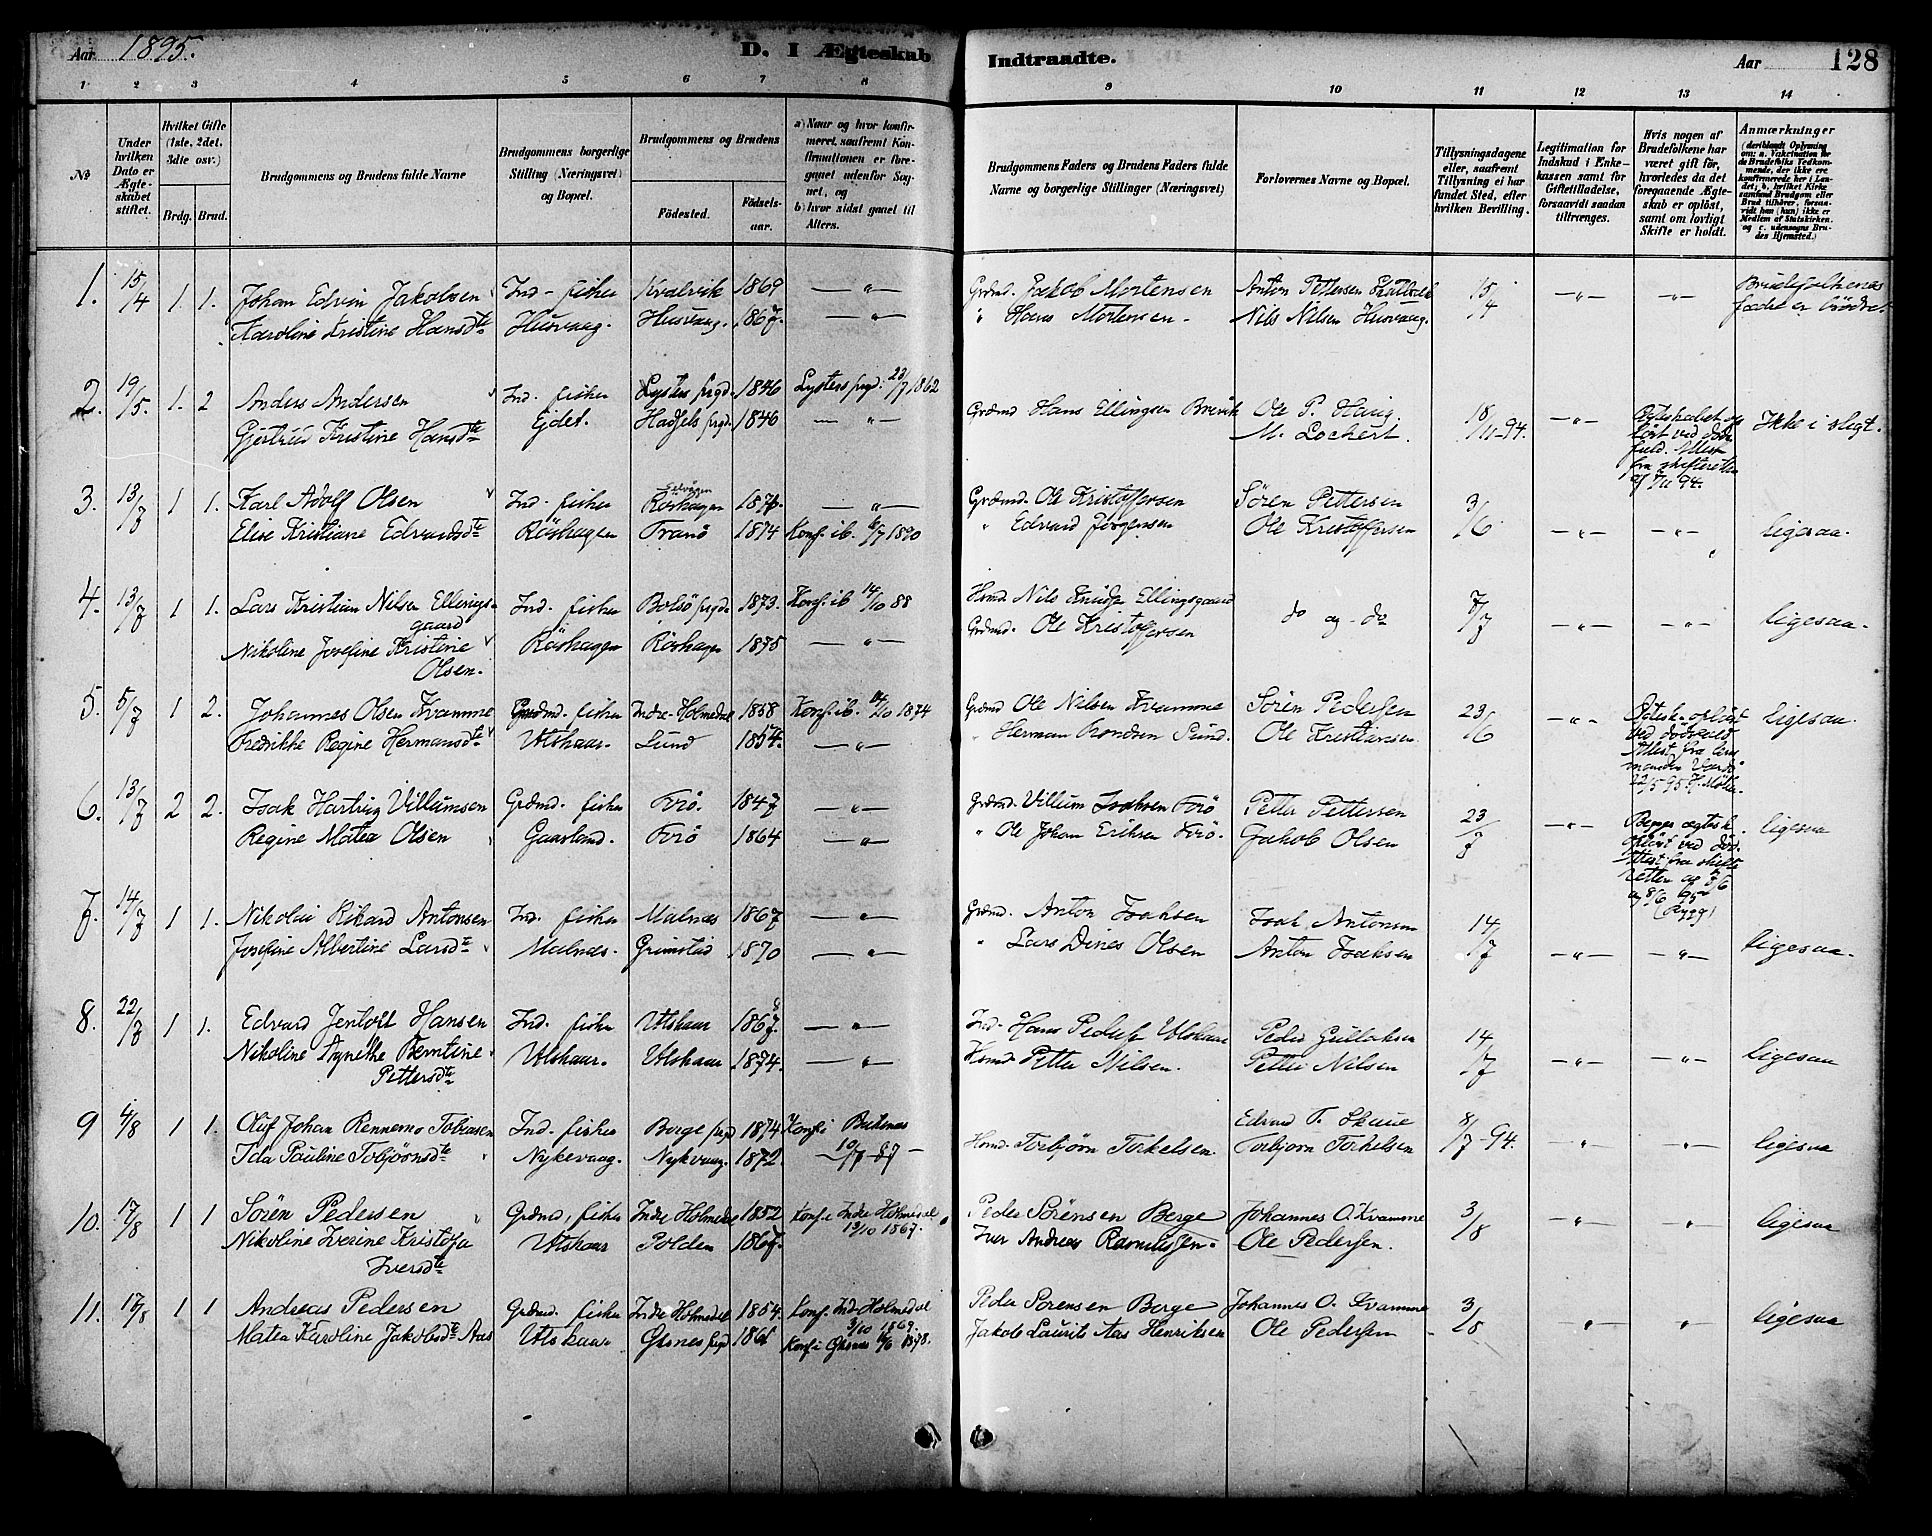 Aar 1895.
D. I Ægteskab
Indtraadte.
Aar
128
1 2 3 4 5 6 7 8 9 10 11 12 13 14
No
Under hvilken Dato er Ægteskabet stiftet.
Hvilket Gifte (1ste, 2det, 3die osv.)
Brdg. Brud.
Brudgommens og Brudens fulde Navne
Brudgommens borgerlige Stilling (Næringsvei) og Bopæl.
Brudgommens og Brudens
Fødested.
Fødsels-aar.
a) Naar og hvor konfirmeret, saafremt Konfirmationen er foregaaet udenfor Sognet, og
b) hvor sidst gaaet til Alters.
Brudgommens Faders og Brudens Faders fulde Navne og borgerlige Stillinger (Næringsvei)
Forlovernes Navne og Bopæl.
Tillysningsdagene eller, saafremt Tillysning ei har fundet Sted, efter hvilken Bevilling.
Legitimation for Indskud i Enkekassen samt for Giftetilladelse, forsaavidt saadan tiltrænges.
Hvis nogen af Brudefolkene har været gift før, hvorledes da det foregaaende Ægteskab er opløst, samt om lovligt Skifte er holdt.
Anmærkninger (deriblandt Oplysning om: a. Vakcination for de Brudefolks Vedkommende, der ikke ere konfirmerede her i Landet; b. hvilket Kirkesamfund Brudgom eller Brud tilhører, forsaavidt han (hun) ikke er Medlem af Statskirken, og c. udensogns Brudes Hjemsted.)
1. 15/4 1. 1. Johan Edvin Jakobsen Ind- fisker Kvalvik 1869 — " — Grdmd. Jakob Mortensen Anton Pettersen 15/4 — " — — " — Brudefolkenes
Karoline Kristine Hansdte Husvaag. Husvaag. 1867. — " — " Hans Mortensen. Nils Nilsen Husvaag. fædre er brødre.
2. 19/5. 1. 2 Anders Andersen Ind. fisker Lysters prgd. 1846 Lysters prgd. 23/7 1862
Gjertrud Kristine Hansdte Ejdet. Hadsels prgd. 1846 — " — Grdmd Hans Ellingsen Brevik Ole P. Haug. M. Lochert. 18/11-94. — " — Ikke i slegt.
3. 13/7 1 1. Karl Adolf Olsen Ind. fisker Röshagen — " — Grdmd. Ole Kristoffersen Sören Pettersen 3/6
Elise Kristiane Edvardsdte Röshagen Tranö 1874 Konf. ib. 1890 " Edvard Jörgensen Ole Kristoffersen — " — — " — ligesaa.
4. 13/7 1 1. Lars Kristian Nilsen Ellingsgaard Ind. fisker Bolsö prgd. 1873. Konf. ib 14/10 88 Nils Knudsen Ellingsgaard do og do 7/7
Nikoline Josefine Kristine Olsen. Röshagen Röshagen 1875 — " — Grdmd. Ole Kristoffersen — " — — " — ligesaa.
5. 5/7 1 2. Johannes Olsen Kvamme Grdmd. fisker Indre-Holmedal 1858 Konf. ib. 1874 Grdmd Ole Nilsen Kvamme Sören Pedersen 23/6 — " — ligesaa.
Fredrikke Regine Hermansdte Utskaar. Lund 1854. — " — " Herman Lund. Ole Kristiansen.
6. 13/7 2 2. Isak Hartvig Villumsen Grdmd. fisker Forö. 1847 — " — Grdmd. Villum Isaksen Forö Petter Pettersen 23/7 — " — ligesaa
Regine Matea Olsen Gaasland. Forö 1864 — " — " Ole Johan Eriksen Forö. Jakob Olsen
7. 14/7 1 1. Nikolai Rikard Antonsen Ind. fisker Malnes 1867 — " — Grdmd. Anton Isaksen Isak Antonsen 14/7
Josefine Albertine Larsdte Malnes. Grimstad 1870 — " — " Lars Dines Olsen Anton Isaksen — " — — " — ligesaa.
8. 22/7 1 1. Edvard Jentoft Hansen Ind. fisker Utskaar 1867. — " — Ind. Hans Peders. Utskaar Peder Gullaksen 14/7
Nikoline Agnethe Berntine Pettersdte Utskaar. Utskaar 1874. — " — Petter Nilsen. Petter Nilsen — " — — " — ligesaa
9 4/8 1 1. Oluf Johan Rennemo Tobiassen Ind. fisker Borge prgd 1874 Konf. i Buksnes Edvard T. Skaue 8/7-94.
Ida Pauline Tobjörnsdte Nykevaag. Nykvaag. 1872. Torbjörn Torkelsen. Torbjørn Torkelsen ligesaa
10. 17/8 1 1 Sören Pedersen Grdmd. fisker Indre Holmedal 1852 Konf. i Indre Holmedal 13/10 1867. Peder Sörensen Berge Johannes O. Kvamme 3/8 ligesaa
Nikoline Iverine Kristofa Iversdte Utskaar Polden 1867. Iver Andreas Rasmussen. Ole Pedersen.
11. 17/8 1 1 Andreas Pedersen Grdmd. fisker Indre Holmedal 1854. Konf. Ind. Holmedal 3/10 1869. Peder Sörensen Berge Johannes O. Kvamme 3/8 ligesaa
Matea Karoline Jakobsdte Aas Utskaar 1861 Jakob Laurits Aas Henriksen Ole Pedersen